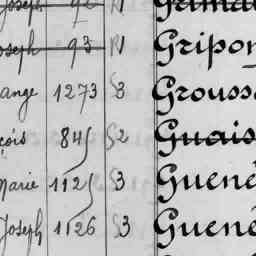 Joseph 92 R1 Grima
Joseph 93 R1 Gripon
ange 1273 S3 Grouss
çois 845 S2 Guais
Marie 1125 S3 Guené
Joseph 1126 S3 Guené